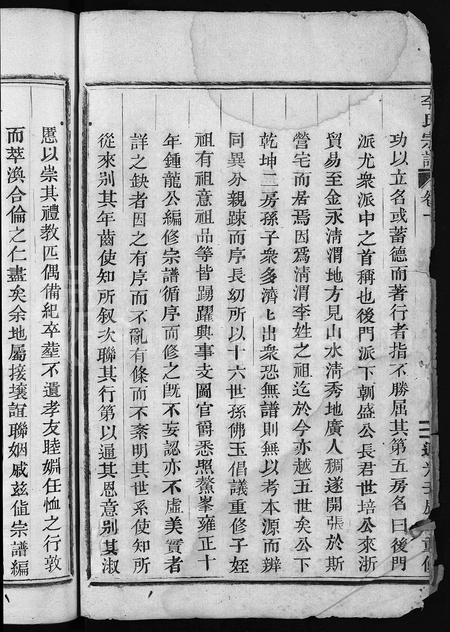 李氏宗譜 卷一
功以立名或蓄德而著行者指不勝屈其第五房名曰後門
派尤衆派中之首稱也後門派下朝盛公長君世培公來浙
貿易至金永清渭地方見山水清秀地廣人稠遂開張於斯
營宅而居焉因爲清渭李姓之祖迄於今亦越五世矣公下
乾坤二房孫子衆多濟匕出衆恐無譜則無以考本源而辨
同異分親踈而序長幼所以十六世孫佛玉倡議重修子姪
祖有祖意祖品等皆踴躍興事支圖官爵悉照鰲峯雍正十
年鍾龍公編修宗譜循序而修之旣不妄認亦不虛美實者
詳之缺者因之有序而不亂有條而不紊明其世系使知所
從來別其年齒使知所叙次聯其行第以逼其恩意別其淑
慝以崇其禮教匹偶備紀卒塟不遺孝友睦婣任恤之行敦
而萃渙合倫之仁盡矣余地屬接壤誼聯姻戚兹值宗譜編